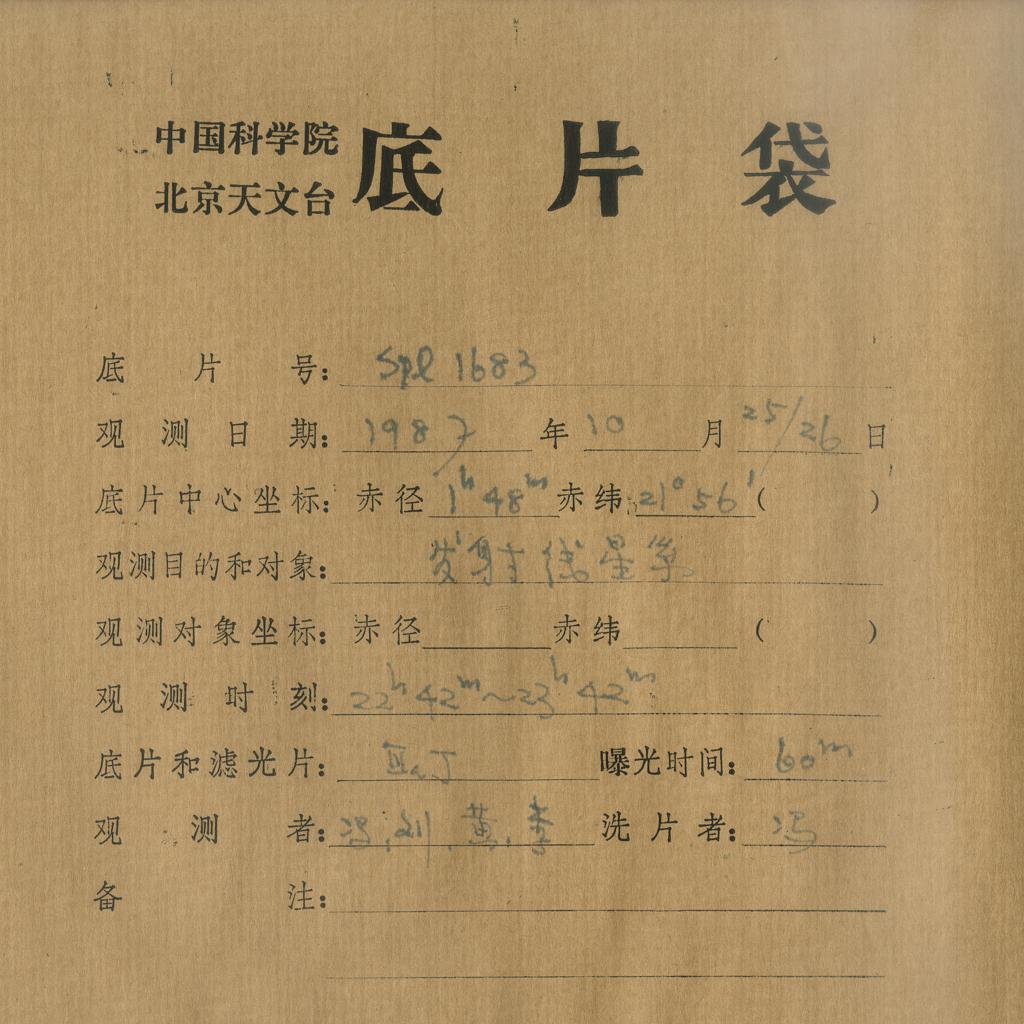 中国科学院
北京天文台
底片袋
底片号：Spl 1683
观测日期：1987年10月25/26日
底片中心坐标：赤径1h48m赤纬21°56′（ ）
观测目的和对象：发射线星系
观测对象坐标：赤径 赤纬 （ ）
观测时刻：22h42m~23h42m
底片和滤光片：IIaJ 曝光时间：60m
观测者：冯.刘.黄.李 洗片者：冯
备注：